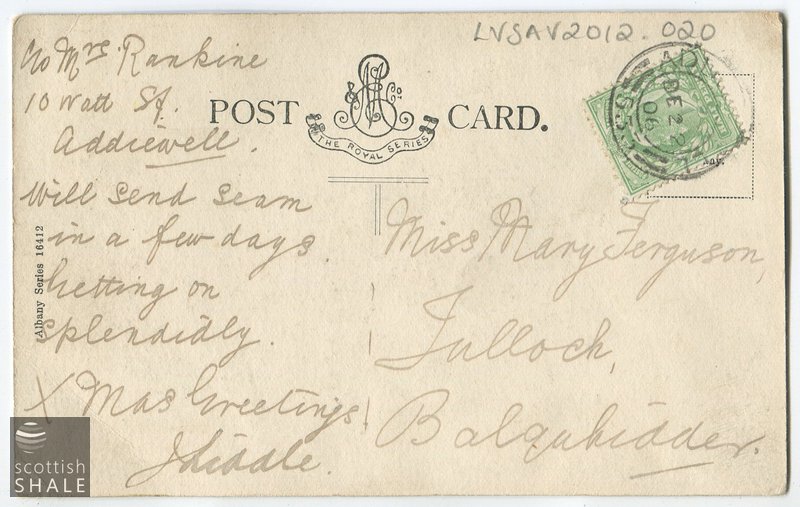 LVSAV2012.020
c/o Mrs Rankine
10 Watt St.
Addiewell.
POST CARD.
THE ROYAL SERIES
DE 22
06
Will send seam
in a few days.
Getting on
splendidly.
X Mas Greetings!
J Liddle.
Albany Series 16412
Miss Mary Ferguson,
Tulloch,
Balquhidder.
scottish
SHALE